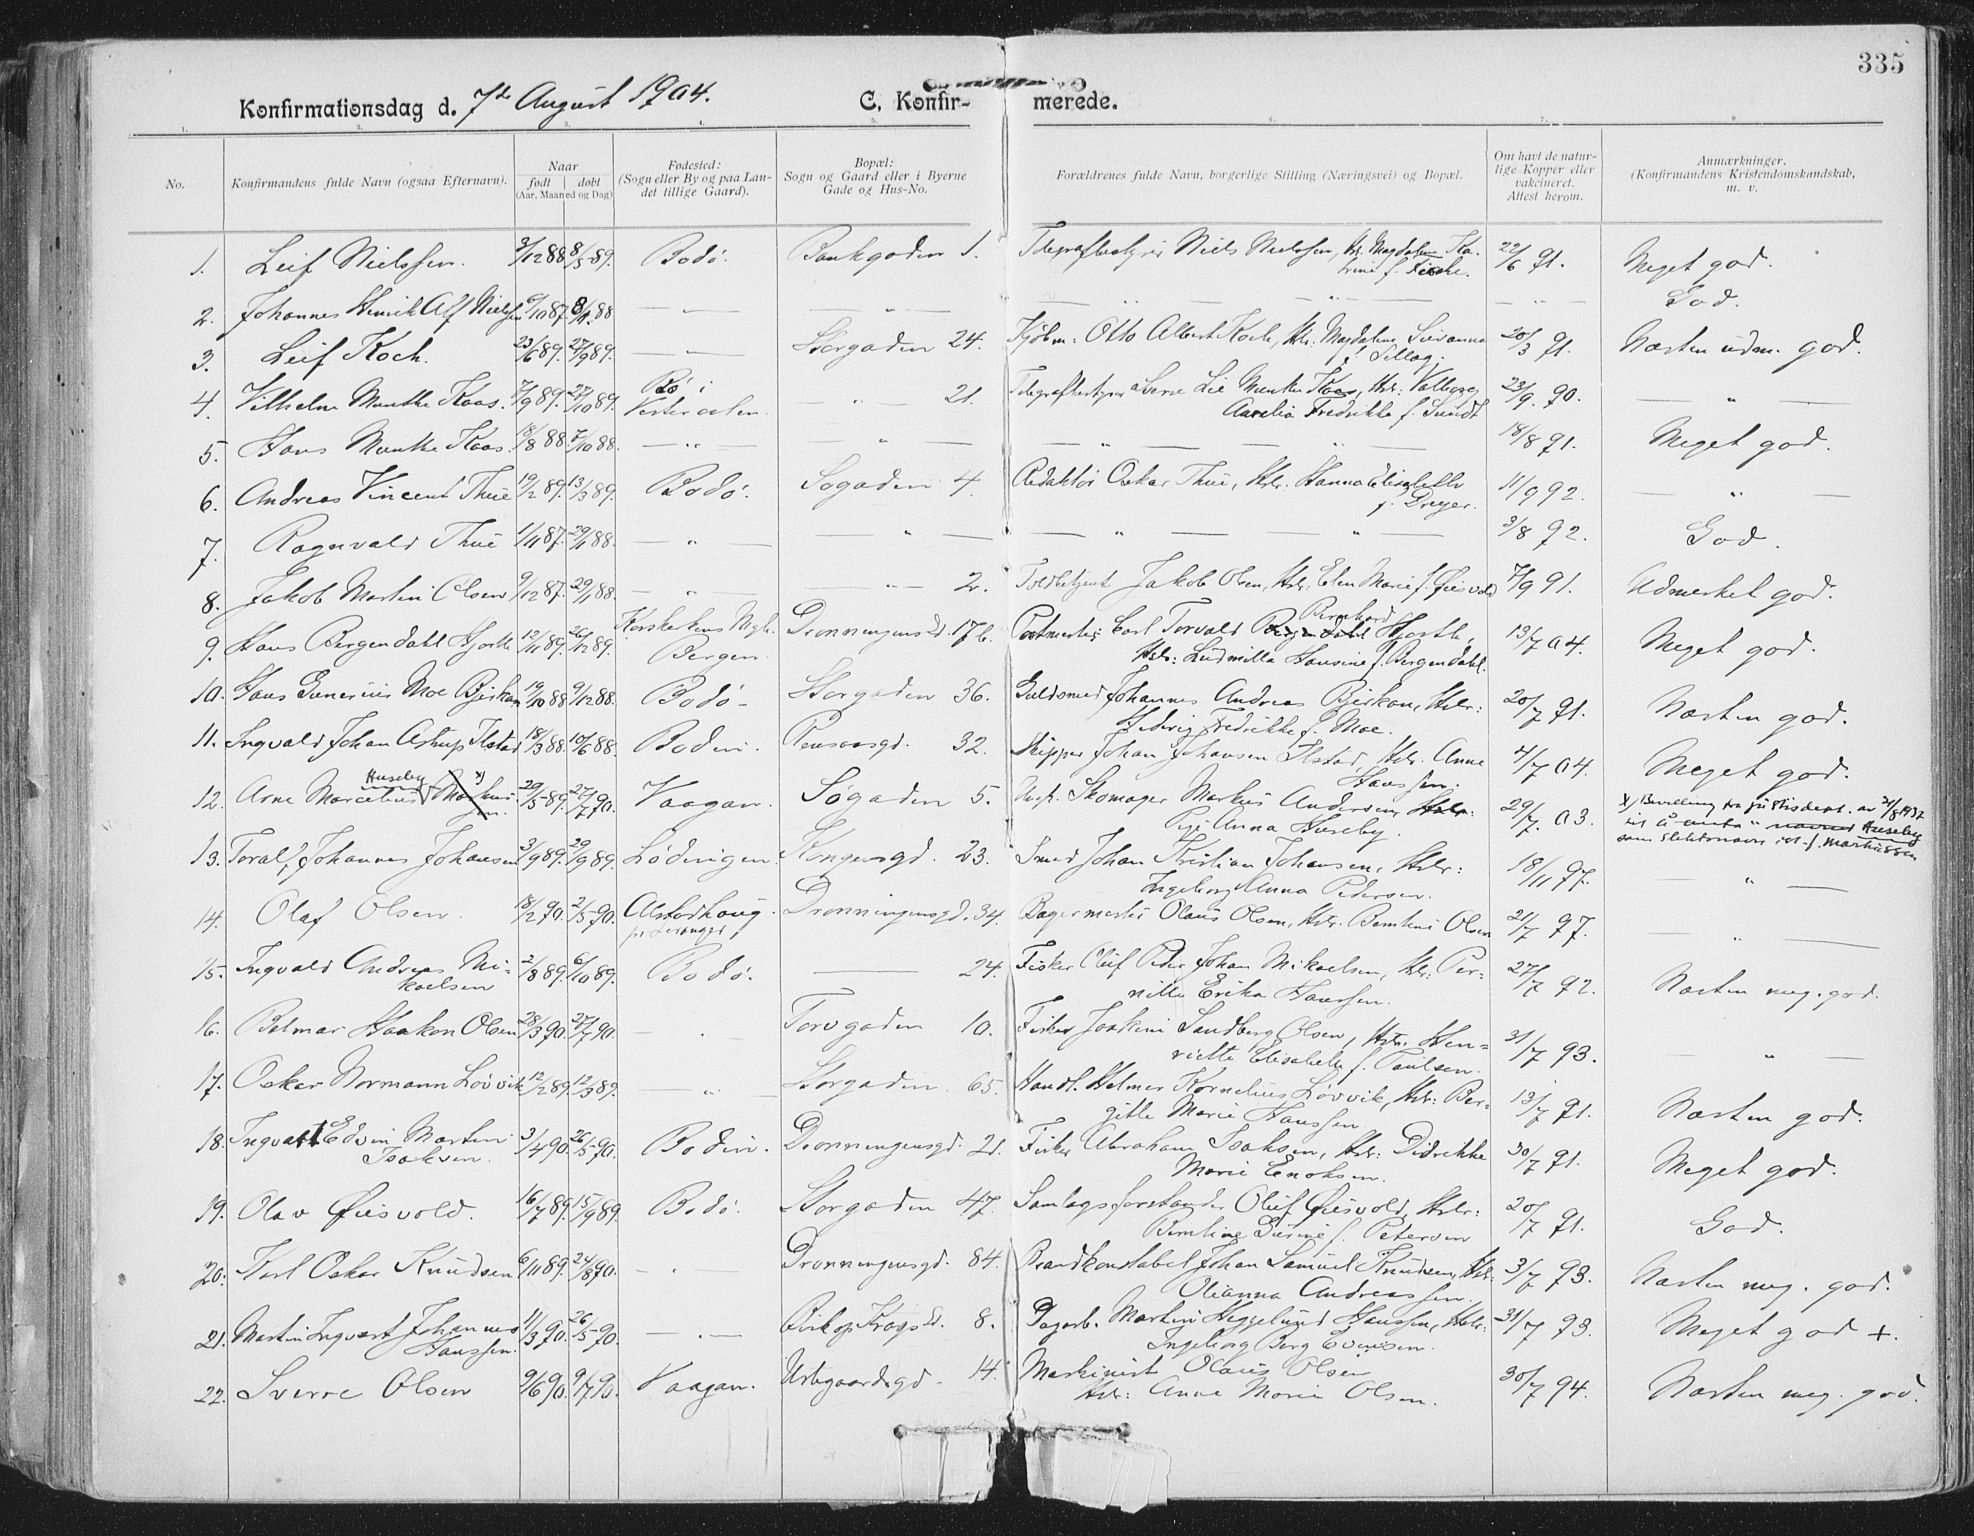 335
Konfirmationsdag d. 7de August 1904. C. Konfir- merede.
1. 2. 3. 4. 5. 6. 7. 8.
No.
Konfirmandens fulde Navn (ogsaa Efternavn).
Naar
født døbt
(Aar, Maaned og Dag)
Fødested:
(Sogn eller By og paa Lan-
det tillige Gaard).
Bopæl:
Sogn og Gaard eller i Byerne
Gade og Hus-No.
Forældrenes fulde Navn, borgerlige Stilling (Næringsvei) og Bopæl.
Om havt de natur-
lige Kopper eller
vakcineret.
Attest herom.
Anmærkninger.
(Konfirmandens Kristendomskundskab,
m. v.
1. Leif Nielssen. 3/12 88 8/5 89. Bodø. Bankgaden 1. Telegrafbestyrer Niels Nielssen, Hr. Magdalene Ka- 22/6 91. Meget god.
trine f.
2. Johannes Henrik Alf Nielssen 6/10 87. 88 — " — — " — — " — " — — " — God.
3. Leif Koch. 23/6 89. 27/9 89. — " — Storgaden 24. Kjøbm. Otto Albert Koch, Hr. Magdalene Susanna 20/3 91. Næsten udm. god.
f.
4. Vilhelm Munthe Kaas. 7/9 89. 27/10 89. Bø i — " — 21. Telegrafbestyrer Sverre Lie Munthe Kaas, Hr. Valborg 23/9. 90. — " —
Vesteraalen. Aurelia Fredrikke f. Sundt
5. Hans Munthe Kaas. 18/8 88. 7/10 88. — " — — " — — " — " — 18/8 91. Meget god.
6. Andreas Vincent Thue 19/2 89. 13/3 89. Bodø. Søgaden 4 Redaktør Oskar Thue, Hr. Hanna Elisabeth 11/9 92. — " —
f. Dreyer.
7. Ragnvald Thue 1/11 87. 29/1 88. — " — — " — — " — " — 3/8 92. God.
8. Jakob Martin Olsen 9/12 87. 29/1 88. — " — — " — 2. Toldbetjent Jakob Olsen, Hr. Elen Marie f. Øiesvold 7/9 91. Udmerket god.
9. Hans Bergendahl Hjorth 12/11 89. 26/12 89. Korskirkens Mgh. Dronningensgd. 17 b. Postmester Carl Torvald Bernhard Hjorth, 13/7 04. Meget god.
Bergen. Hr. Ludmilla Hansine f. Bergendahl.
10. Hans Gunerius Moe Bjerkan 19/10 88 9/12 88. Bodø. Storgaden 36. Guldsmed Johannes Andreas Bjerkan, Hr. 20/7 91. Næsten god.
Hedvig Fredrikke f. Moe.
11. Ingvald Johan Astrup Ilstad 18/3 88. 10/6 88. Bodin. Rensaasgd. 32. Skipper Johan Johansen Ilstad, Hr. Anne 4/7 04. Meget god.
Hanssen.
12. Arne Marcelius Huseby x) Markus- 29/5 89. 27/7 90. Vaagan. Søgaden 5. Skomager Markus Andersen, 29/7. 03. x) Bevilling fra Justisdept. av 21/8 1937
sen. Anna Huseby. til å anta navnet Huseby
som slektsnavn ist. f. Markussen
13. Toralf Johannes Johansen 3/9 89. 29/9 89. Lødingen. Kongensgd. 23. Smed Johan Kristian Johansen, Hr. 18/11 97. — " —
Ingeborg Anna Pedersen.
14. Olaf Olsen. 18/2 90. 2/5 90. Alstadhoug. Dronningensgd. 34. Bagermester Olaus Olsen, Hr. Berntine Olsen 21/7 97. — " —
15. Ingvald Andreas Mi- 2/8 89. 6/10 89. Bodø. — 24. Fisker Oluf Peder Johan Mikaelsen, Hr. Per- 27/7 92. Næsten meg. god.
kaelsen nille Erika Hanssen.
16. Belmar Haakon Olsen 28/3 90. 27/7 90. — " — Torvgaden 10. Fisker Joakim Sandberg Olsen, Hr. Hen- 31/7 93. — " —
riette Elisabeth f. Paulsen.
17. Oskar Normann Løvvik 12/2 89. 12/3 89. — " — Storgaden 65. Handl. Helmer Kornelius Løvvik, Hr. Ber- 13/7 91. Næsten god.
gitte Marie Hanssen.
18. Ingvart Edvin Martin 3/4 90. 26/5 90. Bodin. Dronningensgd. 21. Fisker Abraham Isaksen, Hr. Didrikke 30/7 91. Meget god.
Isaksen. Marie Enoksen.
19. Olav Øiesvold. 16/7 89. 15/9 89. Bodø. Storgaden 47. Samlagsforstander Oluf Øiesvold, Hr. 20/7 91. God.
Berntine Surine f. Petersen
20. Karl Oskar Knudsen 6/11 89. 24/8 90. — " — Dronningensgd. 84. Brandkonstabel Johan Samuel Knudsen, Hr. 3/7 93. Næsten meg. god.
Olianna Andreassen.
21. Martin Ingvart Johannes 11/3 90. 26/5 90. — " — Biskop Krogsgd. 8. Dagarb. Martin Heggelund Hanssen, Hr. 31/7 93. Meget god +.
Hanssen. Ingeborg Berg Evensen.
22. Sverre Olsen 9/6 90. 9/7 90. Vaagan. Urtegaardsgd. 14. Maskinist Olaus Olsen 30/7 94. Næsten meg. god.
Hr. Anne Marie Olsen.